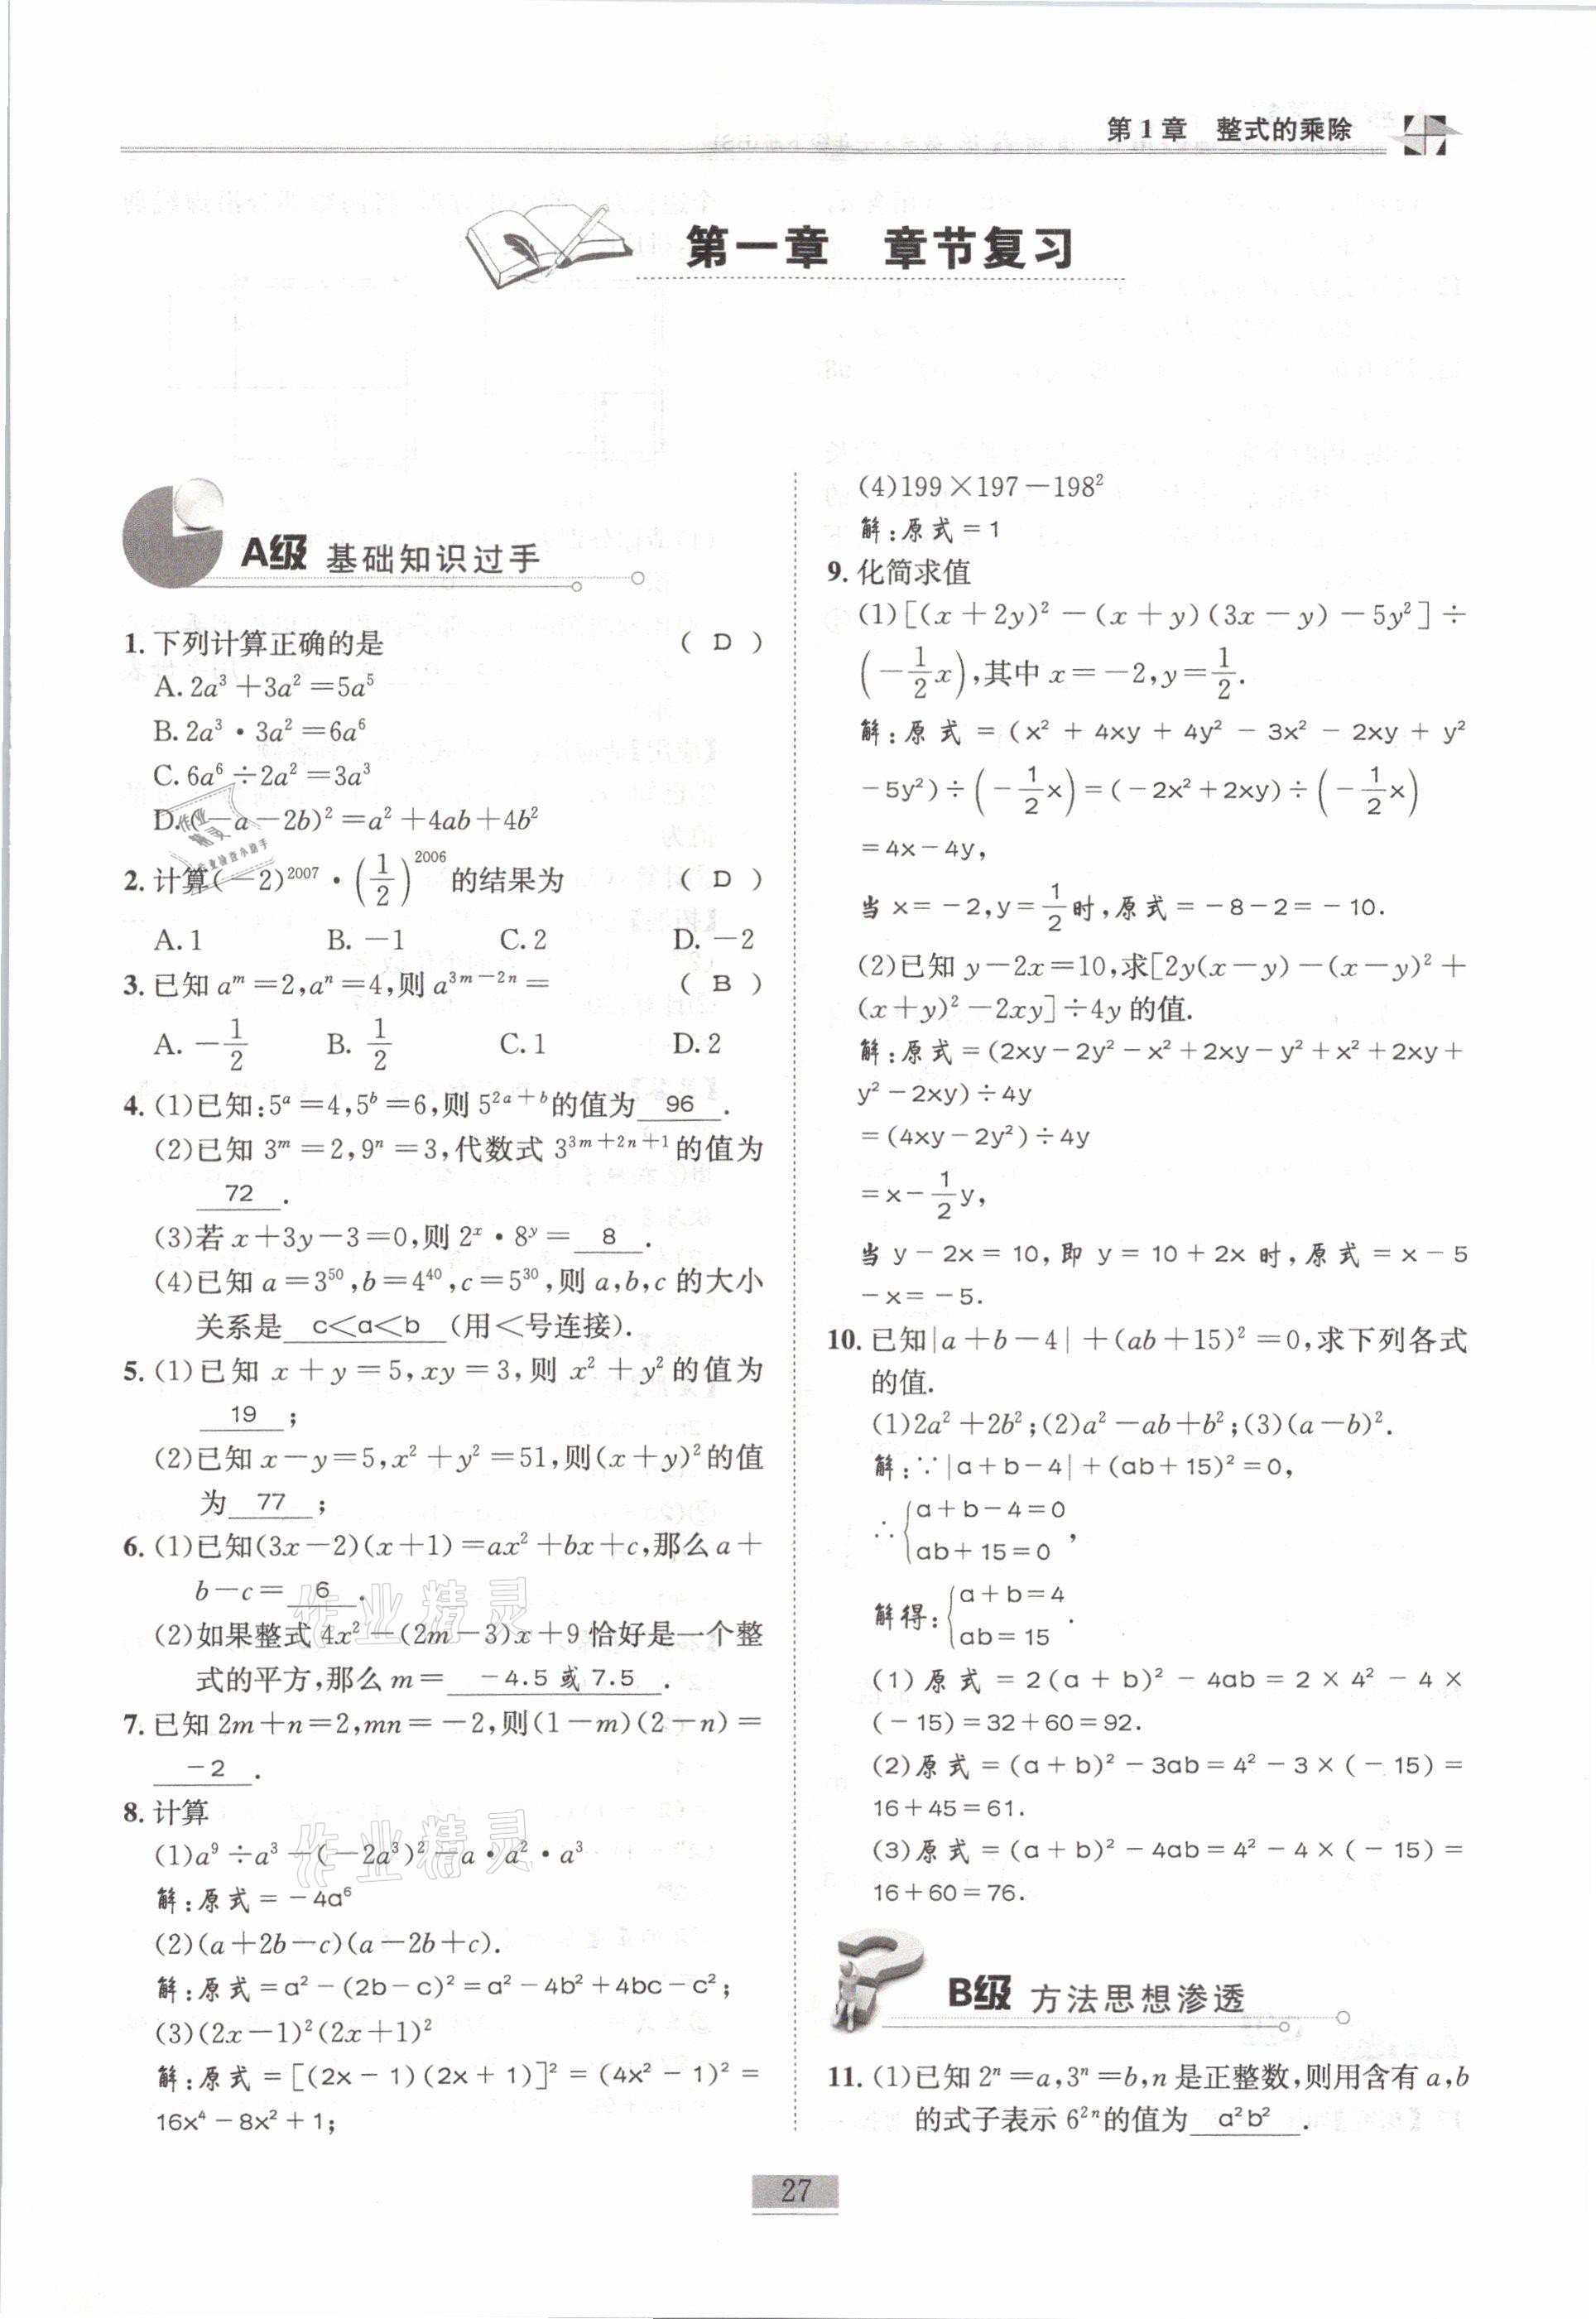 第1章 整式的乘除
第一章 章节复习
A级 基础知识过手
1. 下列计算正确的是 ( D )
A. 2a³+3a²=5a⁵
B. 2a³·3a²=6a⁶
C. 6a⁶÷2a²=3a³
D. (-a-2b)²=a²+4ab+4b²
2. 计算(-2)²⁰⁰⁷·(1/2)²⁰⁰⁶的结果为 ( D )
A. 1 B. -1 C. 2 D. -2
3. 已知 aᵐ=2,aⁿ=4,则 a³ᵐ⁻²ⁿ= ( B )
A. -1/2 B. 1/2 C. 1 D. 2
4. (1)已知:5ᵃ=4,5ᵇ=6,则 5²ᵃ⁺ᵇ的值为 96 .
(2)已知 3ᵐ=2,9ⁿ=3,代数式 3³ᵐ⁺²ⁿ⁺¹的值为
72 .
(3)若 x+3y-3=0,则 2ˣ·8ʸ= 8 .
(4)已知 a=3⁵⁰,b=4⁴⁰,c=5³⁰,则 a,b,c 的大小
关系是 c<a<b (用<号连接).
5. (1)已知 x+y=5,xy=3,则 x²+y² 的值为
19 ;
(2)已知 x-y=5,x²+y²=51,则(x+y)²的值
为 77 ;
6. (1)已知(3x-2)(x+1)=ax²+bx+c,那么 a+
b-c= 6 .
(2)如果整式 4x²-(2m-3)x+9 恰好是一个整
式的平方,那么 m= -4.5 或 7.5 .
7. 已知 2m+n=2,mn=-2,则(1-m)(2-n)=
-2 .
8. 计算
(1)a⁹÷a³-(-2a³)²-a·a²·a³
解:原式=-4a⁶
(2)(a+2b-c)(a-2b+c).
解:原式=a²-(2b-c)²=a²-4b²+4bc-c²;
(3)(2x-1)²(2x+1)²
解:原式=[(2x-1)(2x+1)]²=(4x²-1)²=
16x⁴-8x²+1;
(4)199×197-198²
解:原式=1
9. 化简求值
(1)[(x+2y)²-(x+y)(3x-y)-5y²]÷
(-1/2x),其中 x=-2,y=1/2.
解:原式=(x²+4xy+4y²-3x²-2xy+y²
-5y²)÷(-1/2x)=(-2x²+2xy)÷(-1/2x)
=4x-4y,
当 x=-2,y=1/2时,原式=-8-2=-10.
(2)已知 y-2x=10,求[2y(x-y)-(x-y)²+
(x+y)²-2xy]÷4y 的值.
解:原式=(2xy-2y²-x²+2xy-y²+x²+2xy+
y²-2xy)÷4y
=(4xy-2y²)÷4y
=x-1/2y,
当 y-2x=10,即 y=10+2x 时,原式=x-5
-x=-5.
10. 已知|a+b-4|+(ab+15)²=0,求下列各式
的值.
(1)2a²+2b²;(2)a²-ab+b²;(3)(a-b)².
解:∵|a+b-4|+(ab+15)²=0,
∴{a+b-4=0
ab+15=0,
解得:{a+b=4
ab=15.
(1)原式=2(a+b)²-4ab=2×4²-4×
(-15)=32+60=92.
(2)原式=(a+b)²-3ab=4²-3×(-15)=
16+45=61.
(3)原式=(a+b)²-4ab=4²-4×(-15)=
16+60=76.
B级 方法思想渗透
11. (1)已知 2ⁿ=a,3ⁿ=b,n 是正整数,则用含有 a,b
的式子表示 6²ⁿ的值为 a²b² .
27
作业精灵
作业精灵